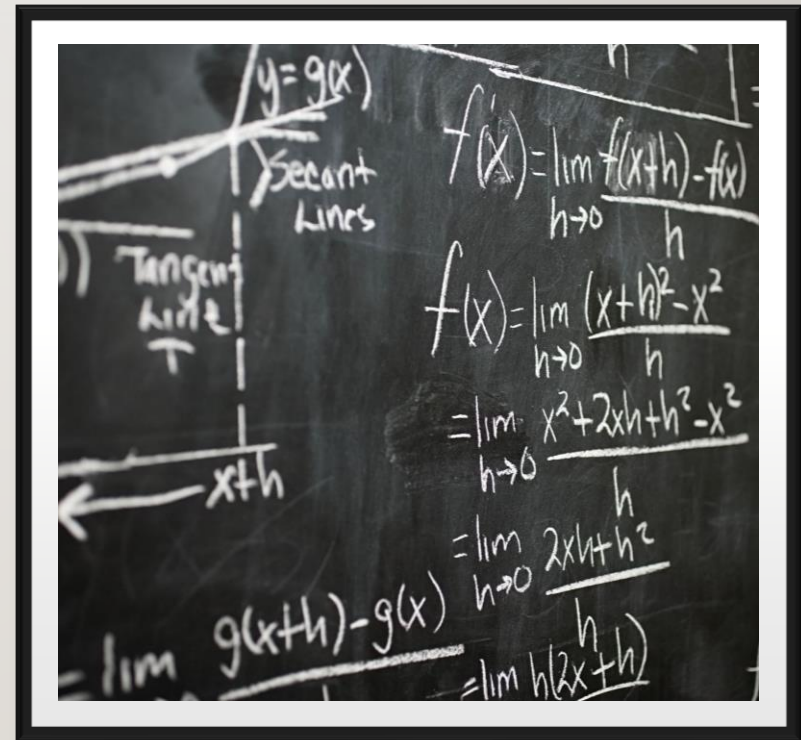 y=g(x)
Secant
Lines
Tangent
Line
T
x+h
=lim g(x+h)-g(x)
h
f'(x)=lim f(x+h)-f(x)
h→0 h
f(x)=lim (x+h)²-x²
h→0 h
=lim x²+2xh+h²-x²
h→0 h
=lim 2xh+h²
h→0 h
=lim h(2x+h)